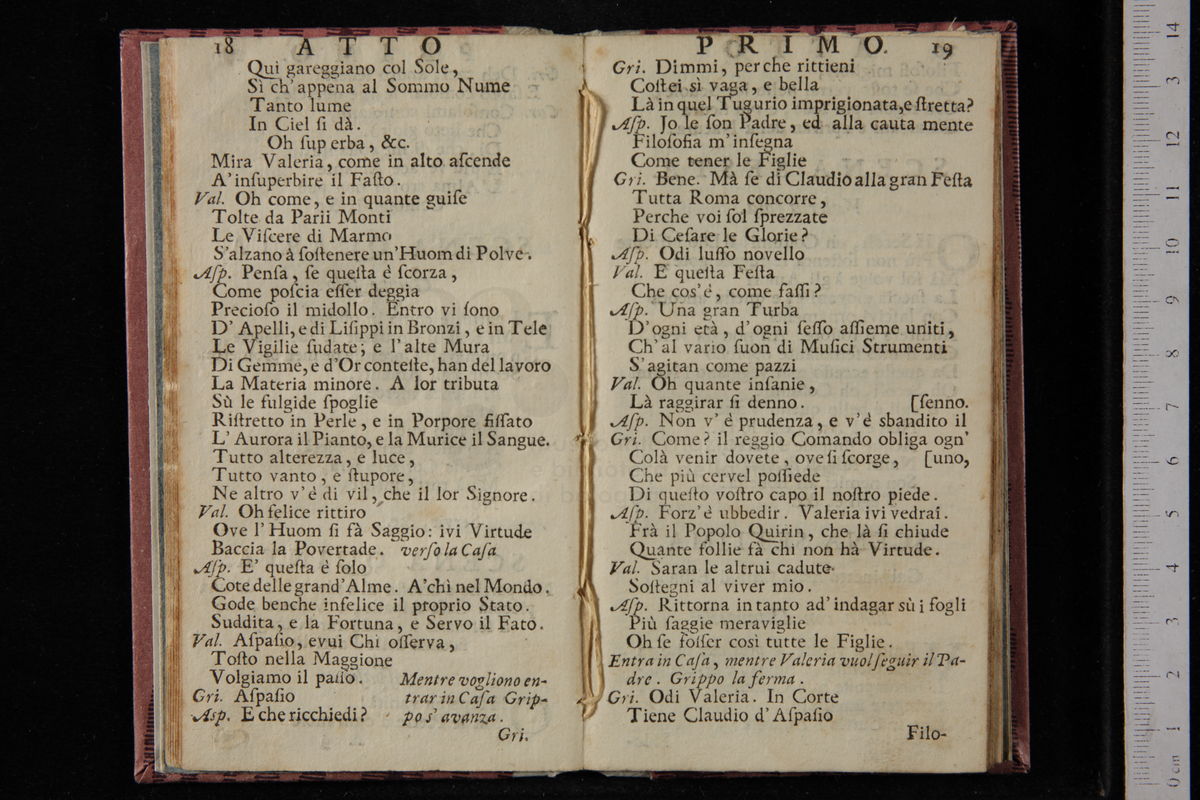 18 ATTO
Qui gareggiano col Sole,
Sì ch'appena al Sommo Nume
Tanto lume
In Ciel ſi dà.
Oh ſup erba, &c.
Mira Valeria, come in alto aſcende
A'inſuperbire il Faſto.
Val. Oh come, e in quante guiſe
Tolte da Parii Monti
Le Viſcere di Marmo
S'alzano à ſoſtenere un'Huom di Polve.
Aſp. Penſa, ſe queſta é ſcorza,
Come poſcia eſſer deggia
Precioſo il midollo. Entro vi ſono
D' Apelli, e di Liſippi in Bronzi, e in Tele
Le Vigilie ſudate; e l'alte Mura
Di Gemme, e d'Or conteſte, han del lavoro
La Materia minore. A lor tributa
Sù le fulgide ſpoglie
Riſtretto in Perle, e in Porpore fiſſato
L' Aurora il Pianto, e la Murice il Sangue.
Tutto alterezza, e luce,
Tutto vanto, e ſtupore,
Ne altro v'é di vil, che il lor Signore.
Val. Oh felice rittiro
Ove l'Huom ſi fà Saggio: ivi Virtude
Baccia la Povertade. verſo la Caſa
Aſp. E' queſta é ſolo
Cote delle grand'Alme. A'chì nel Mondo.
Gode benche infelice il proprio Stato.
Suddita, e la Fortuna, e Servo il Fato.
Val. Aſpaſio, evui Chi oſſerva,
Toſto nella Maggione
Volgiamo il paſſo. Mentre vogliono en-
Gri. Aſpaſio trar in Caſa Grip-
Asp. E che ricchiedi? po s' avanza.
Gri.
PRIMO. 19
Gri. Dimmi, per che rittieni
Coſtei sì vaga, e bella
Là in quel Tugurio imprigionata, e ſtretta?
Aſp. Jo le ſon Padre, ed alla cauta mente
Filoſofia m'inſegna
Come tener le Figlie
Gri. Bene. Mà ſe di Claudio alla gran Feſta
Tutta Roma concorre,
Perche voi ſol ſprezzate
Di Ceſare le Glorie?
Aſp. Odi luſſo novello
Val. E queſta Feſta
Che cos'é, come faſſi?
Aſp. Una gran Turba
D'ogni età, d'ogni ſeſſo aſſieme uniti,
Ch'al vario ſuon di Muſici Strumenti
S'agitan come pazzi
Val. Oh quante inſanie,
Là raggirar ſi denno. [ſenno.
Aſp. Non v' é prudenza, e v'é sbandito il
Gri. Come? il reggio Comando obliga ogn'
Colà venir dovete, ove ſi ſcorge, [uno,
Che più cervel poſſiede
Di queſto voſtro capo il noſtro piede.
Aſp. Forz'é ubbedir. Valeria ivi vedrai.
Frà il Popolo Quirin, che là ſi chiude
Quante follie fà chi non hà Virtude.
Val. Saran le altrui cadute
Soſtegni al viver mio.
Aſp. Rittorna in tanto ad'indagar sù i fogli
Più ſaggie meraviglie
Oh ſe foſſer così tutte le Figlie.
Entra in Caſa, mentre Valeria vuol ſeguir il Pa-
dre. Grippo la ferma.
Gri. Odi Valeria. In Corte
Tiene Claudio d'Aſpaſio
Filo-
14
13
12
11
10
9
8
7
6
5
4
3
2
1
0 cm